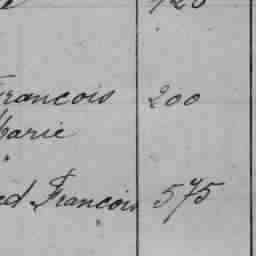 François 200
Marie
François 575